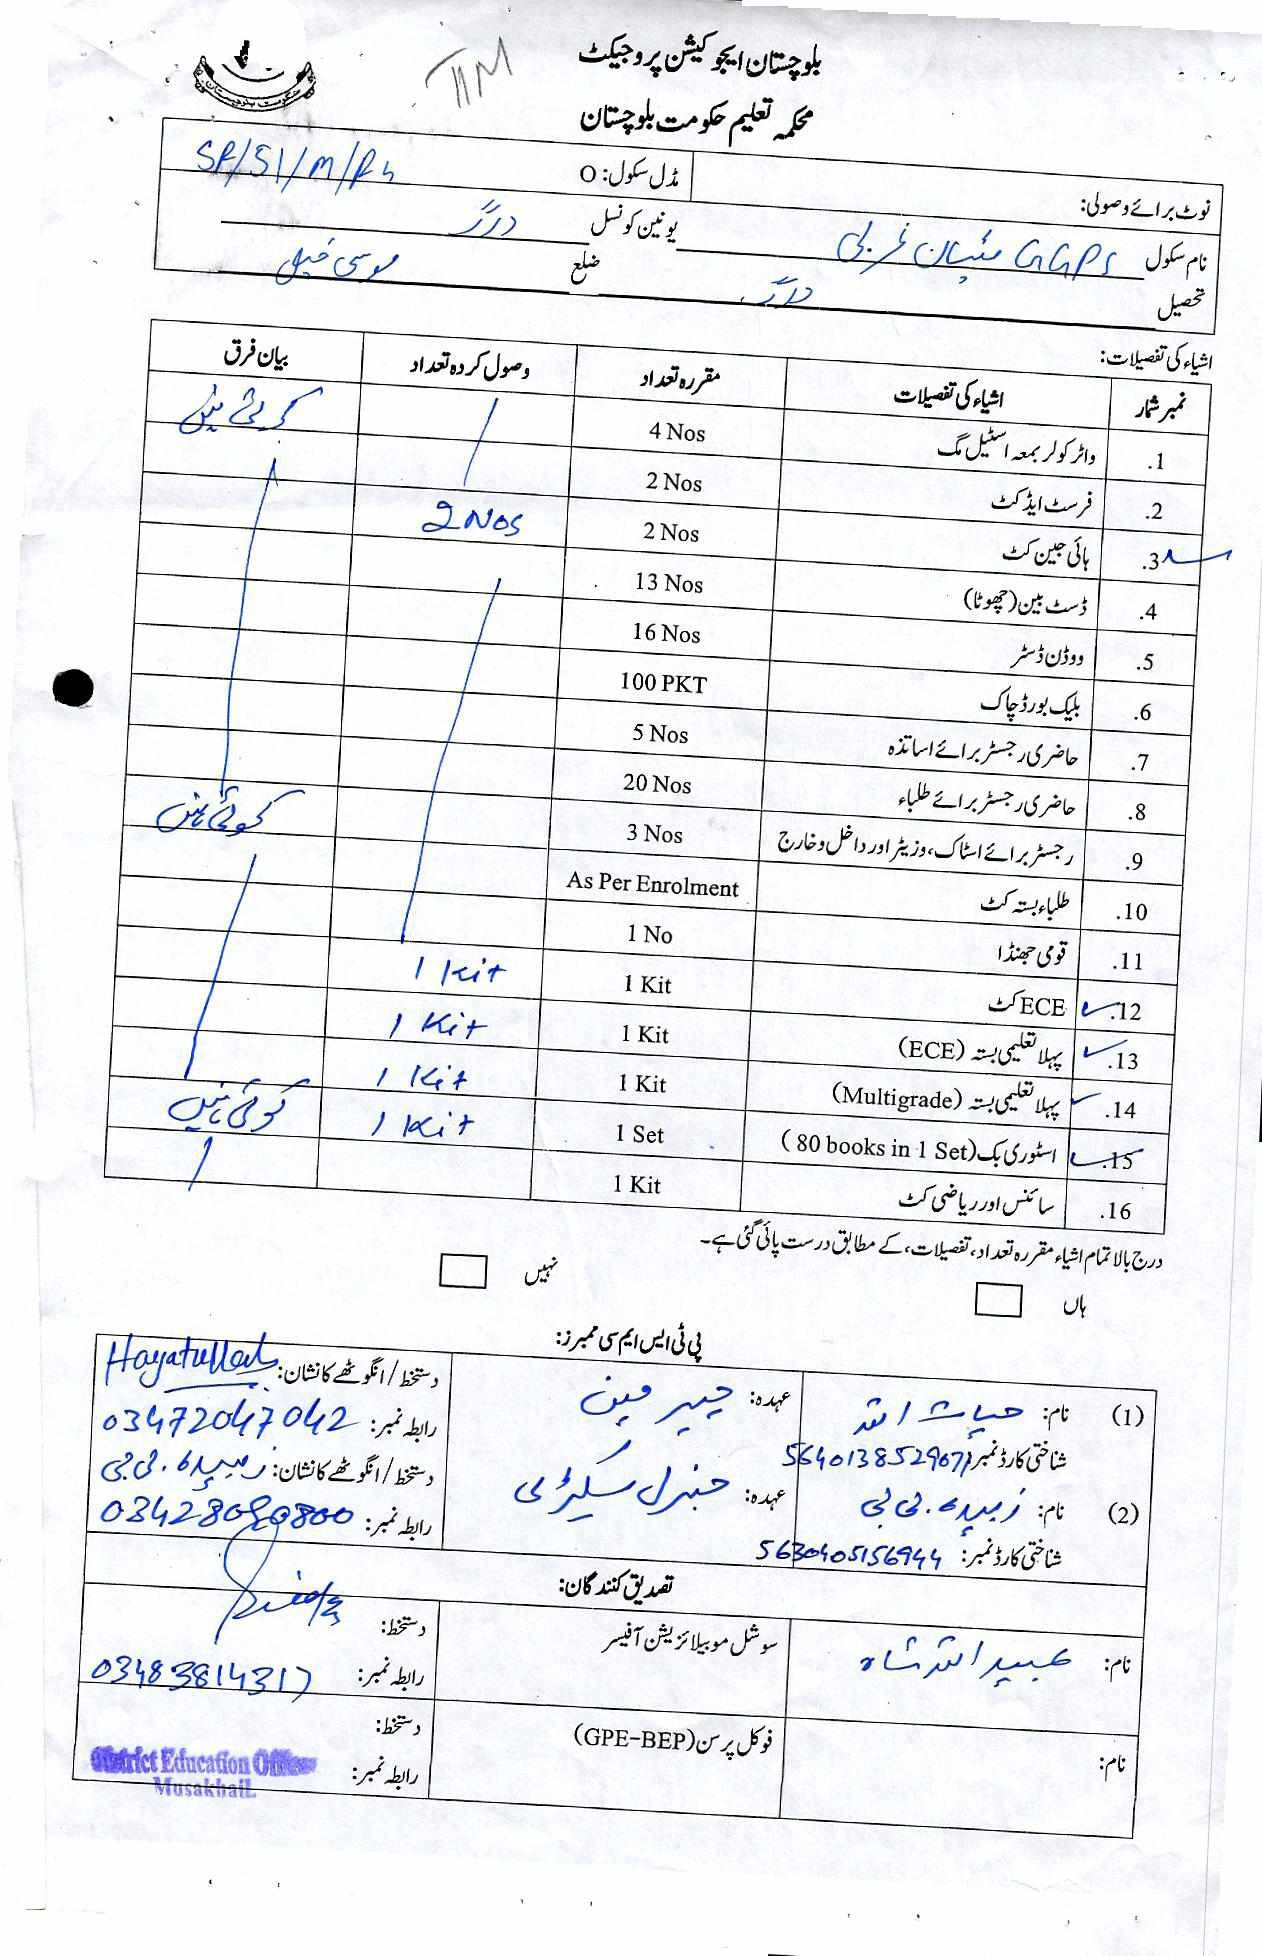 بلوچستان ایجوکیشن پروجیکٹ
محکمہ تعلیم حکومت بلوچستان
حکومت بلوچستان
نوٹ برائے وصولی:
مڈل سکول: O
نام سکول GGPS غربی یونین کونسل درگ
تحصیل درگ ضلع موسیٰ خیل
اشیاء کی تفصیلات:
نمبر شمار اشیاء کی تفصیلات مقررہ تعداد وصول کردہ تعداد بیان فرق
1. واٹر کولر بمعہ اسٹیل مگ 4 Nos کوئی نہیں
2. فرسٹ ایڈ کٹ 2 Nos
3. ہائی جین کٹ 2 Nos 2 Nos
4. ڈسٹ بین (چھوٹا) 13 Nos
5. ووڈن ڈسٹر 16 Nos
6. بلیک بورڈ چاک 100 PKT
7. حاضری رجسٹر برائے اساتذہ 5 Nos
8. حاضری رجسٹر برائے طلباء 20 Nos
9. رجسٹر برائے اسٹاک، وزیٹر اور داخل و خارج 3 Nos کوئی نہیں
10. طلباء بستہ کٹ As Per Enrolment
11. قومی جھنڈا 1 No
12. ECE کٹ 1 Kit 1 Kit
13. پہلا تعلیمی بستہ (ECE) 1 Kit 1 Kit
14. پہلا تعلیمی بستہ (Multigrade) 1 Kit 1 Kit
15. اسٹوری بک (80 books in 1 Set) 1 Set 1 Kit کوئی نہیں
16. سائنس اور ریاضی کٹ 1 Kit
درج بالا تمام اشیاء مقررہ تعداد، تفصیلات، کے مطابق درست پائی گئی ہے۔
ہاں نہیں
پی ٹی ایس ایم سی ممبرز:
(1) نام: حیات اللہ عہدہ: چیرمین دستخط/انگوٹھے کا نشان: Hayatullah
شناختی کارڈ نمبر: رابطہ نمبر: 03472047042
(2) نام: زبیدہ بی بی عہدہ: جنرل سکیٹری دستخط/انگوٹھے کا نشان: زبیدہ بی بی
شناختی کارڈ نمبر: 5630405156944 رابطہ نمبر:
تصدیق کنندگان:
نام: عبید اللہ شاہ سوشل موبیلائزیشن آفیسر دستخط:
رابطہ نمبر: 03483814317
نام: فوکل پرسن (GPE-BEP) دستخط:
رابطہ نمبر:
District Education Officer
Musakhail